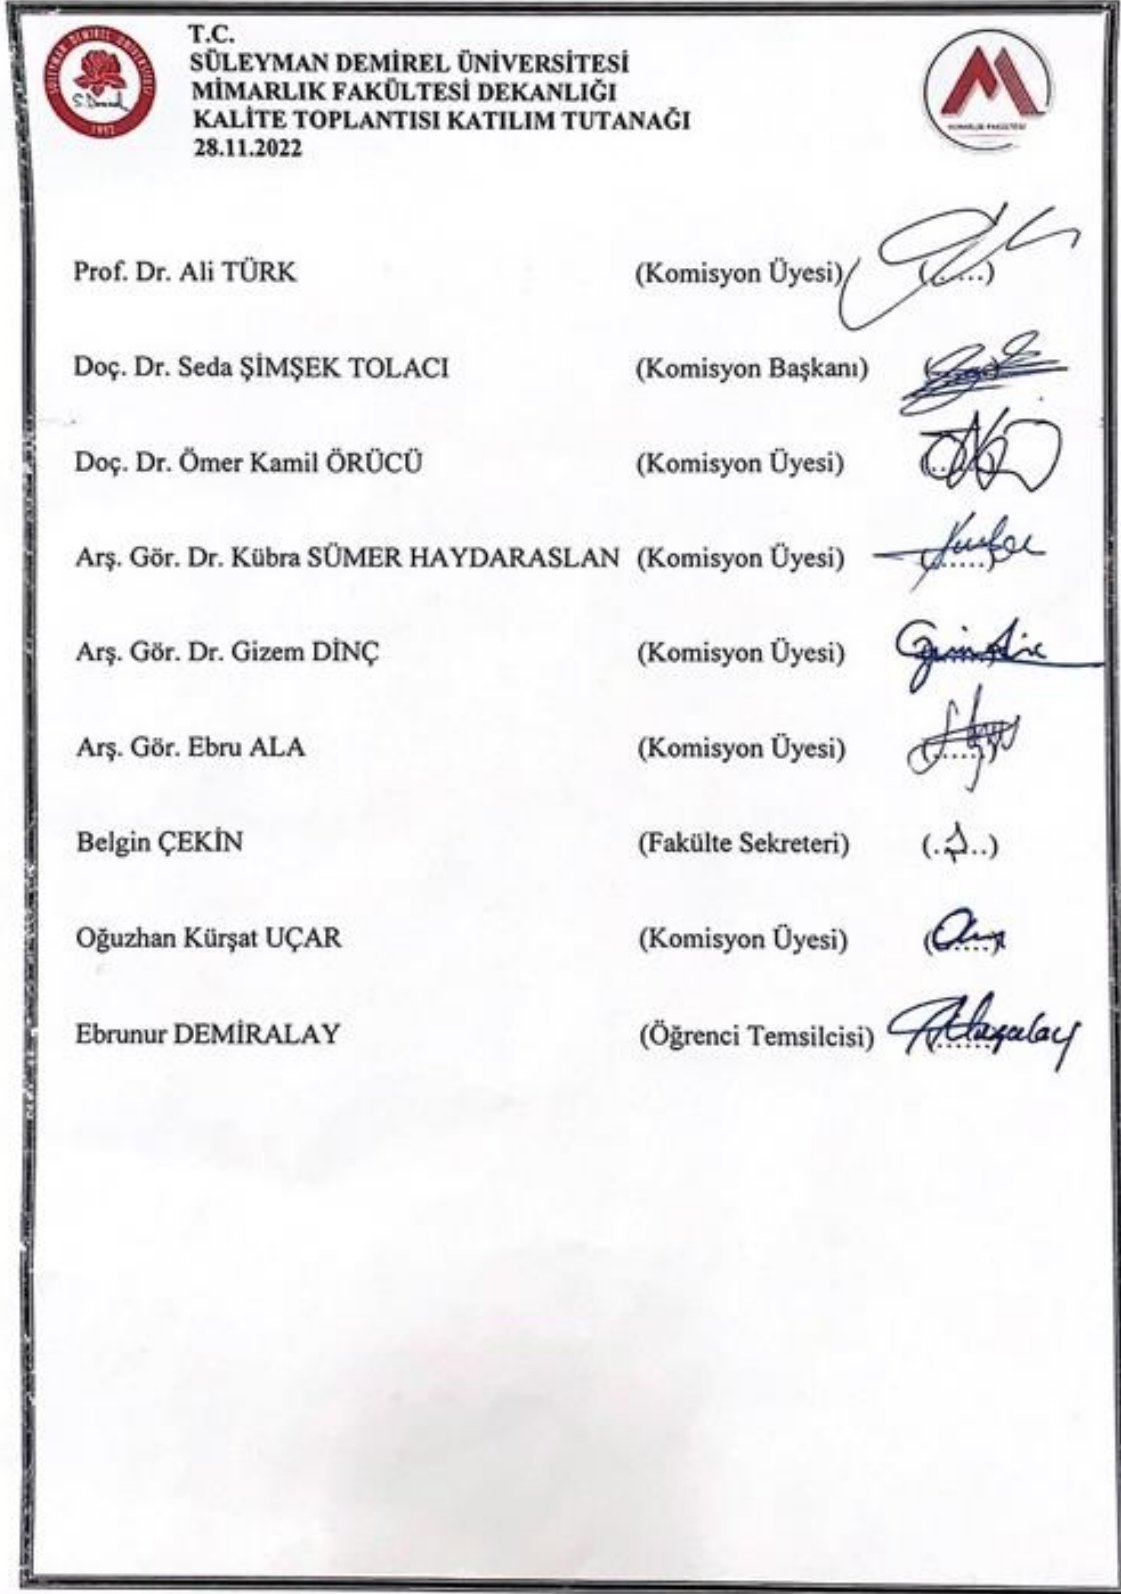 SÜLEYMAN DEMİREL ÜNİVERSİTESİ
S. Demirel
1992
T.C.
SÜLEYMAN DEMİREL ÜNİVERSİTESİ
MİMARLIK FAKÜLTESİ DEKANLIĞI
KALİTE TOPLANTISI KATILIM TUTANAĞI
28.11.2022
MİMARLIK FAKÜLTESİ
Prof. Dr. Ali TÜRK (Komisyon Üyesi) (......)
Doç. Dr. Seda ŞİMŞEK TOLACI (Komisyon Başkanı)
Doç. Dr. Ömer Kamil ÖRÜCÜ (Komisyon Üyesi)
Arş. Gör. Dr. Kübra SÜMER HAYDARASLAN (Komisyon Üyesi) (......)
Arş. Gör. Dr. Gizem DİNÇ (Komisyon Üyesi)
Arş. Gör. Ebru ALA (Komisyon Üyesi) (......)
Belgin ÇEKİN (Fakülte Sekreteri) (......)
Oğuzhan Kürşat UÇAR (Komisyon Üyesi) (......)
Ebrunur DEMİRALAY (Öğrenci Temsilcisi)